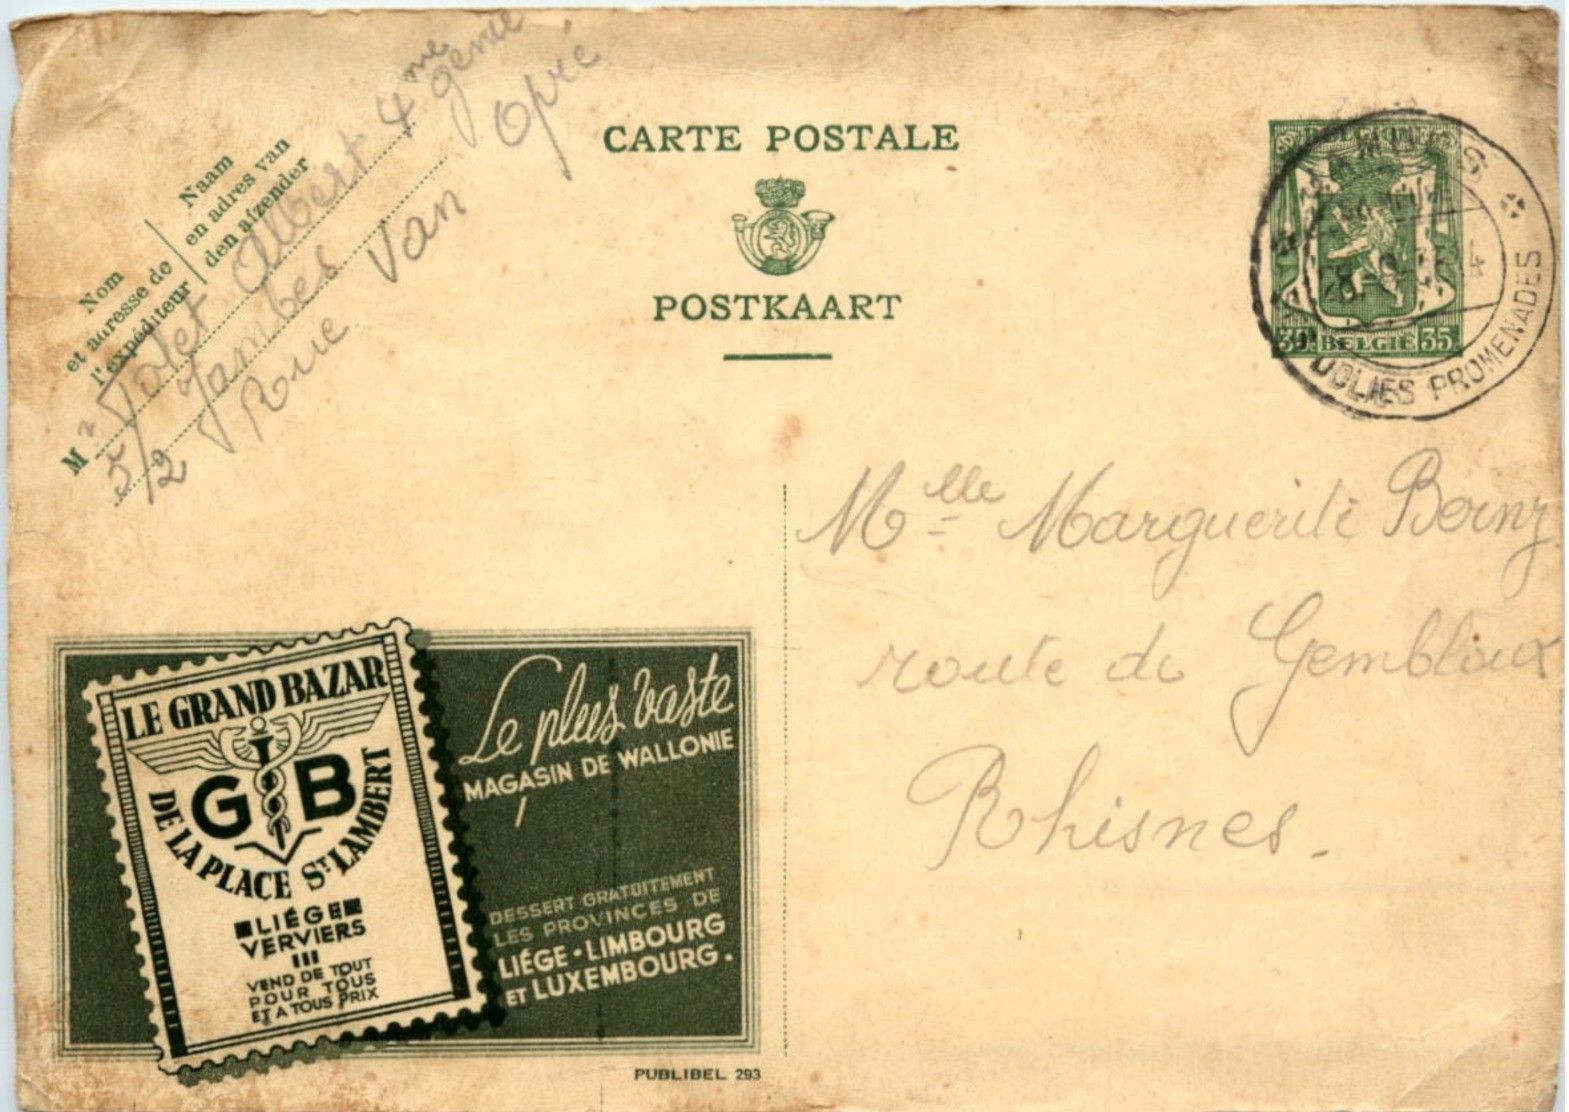 CARTE POSTALE
POSTKAART
Nom
et adresse de
l'expéditeur
Naam
en adres van
den afzender
M r Jolet Albert 4me Génie
5/2 Jambes
Rue Van Opré
BELGIQUE
35 BELGIË 35
JOLIES PROMENADES
Melle Marguerite
route de Gembloux
Rhisnes.
LE GRAND BAZAR
GB
DE LA PLACE ST LAMBERT
LIÉGE
VERVIERS
VEND DE TOUT
POUR TOUS
ET A TOUS PRIX
Le plus vaste
MAGASIN DE WALLONIE
DESSERT GRATUITEMENT
LES PROVINCES DE
LIÉGE·LIMBOURG
ET LUXEMBOURG.
PUBLIBEL 293